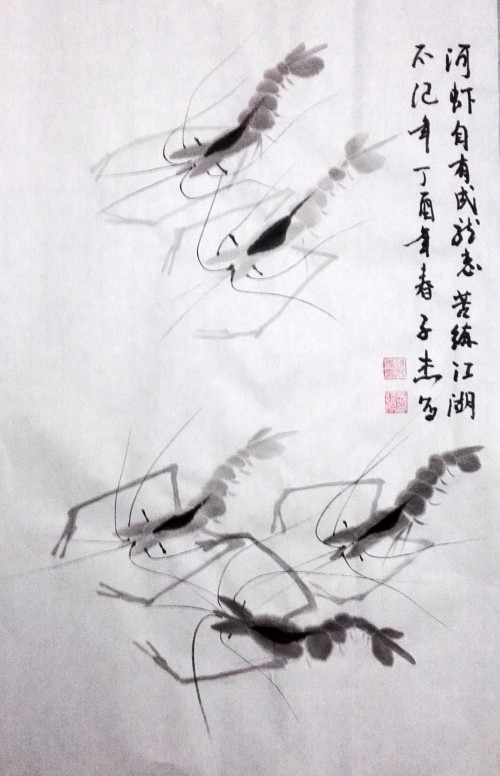 河虾自有成龙志苦练江湖
不记年丁酉年春子杰写